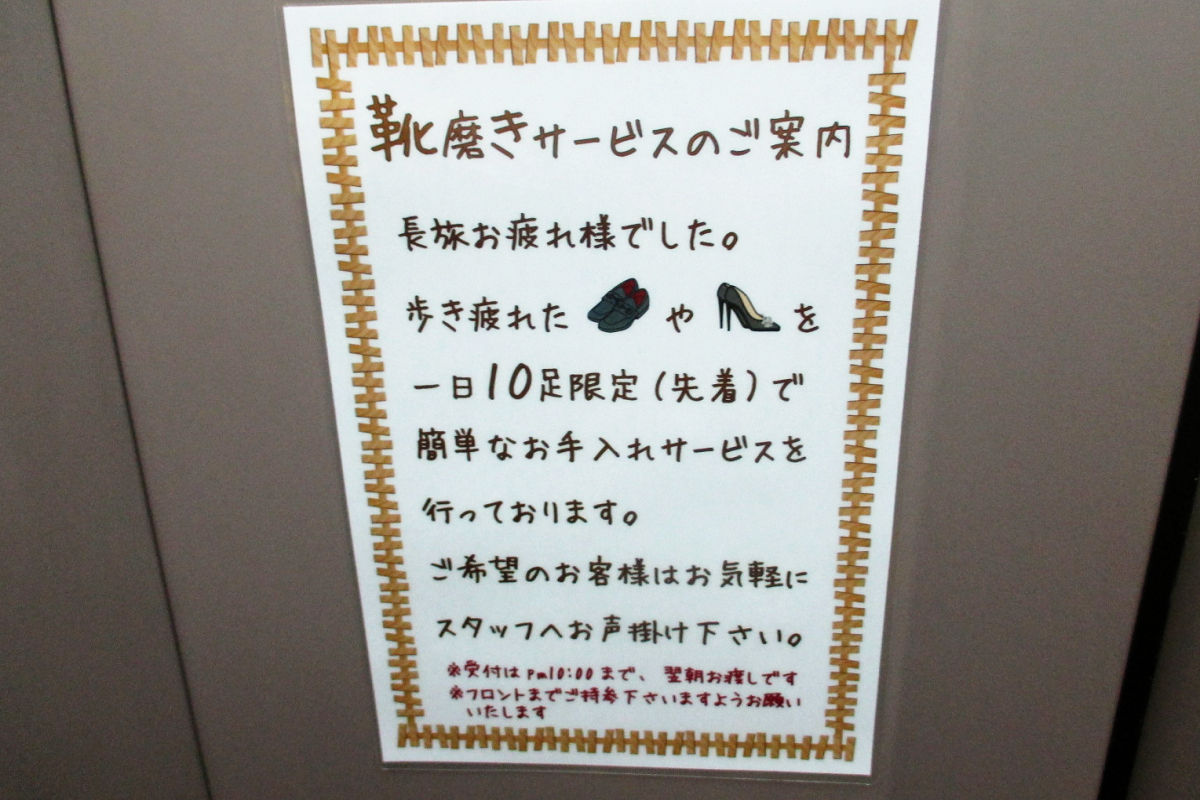 靴磨きサービスのご案内
長旅お疲れ様でした。
歩き疲れた や を
一日10足限定(先着)で
簡単なお手入れサービスを
行っております。
ご希望のお客様はお気軽に
スタッフへお声掛け下さい。
※受付はpm10:00まで、翌朝お渡しです
※フロントまでご持参下さいますようお願い
いたします